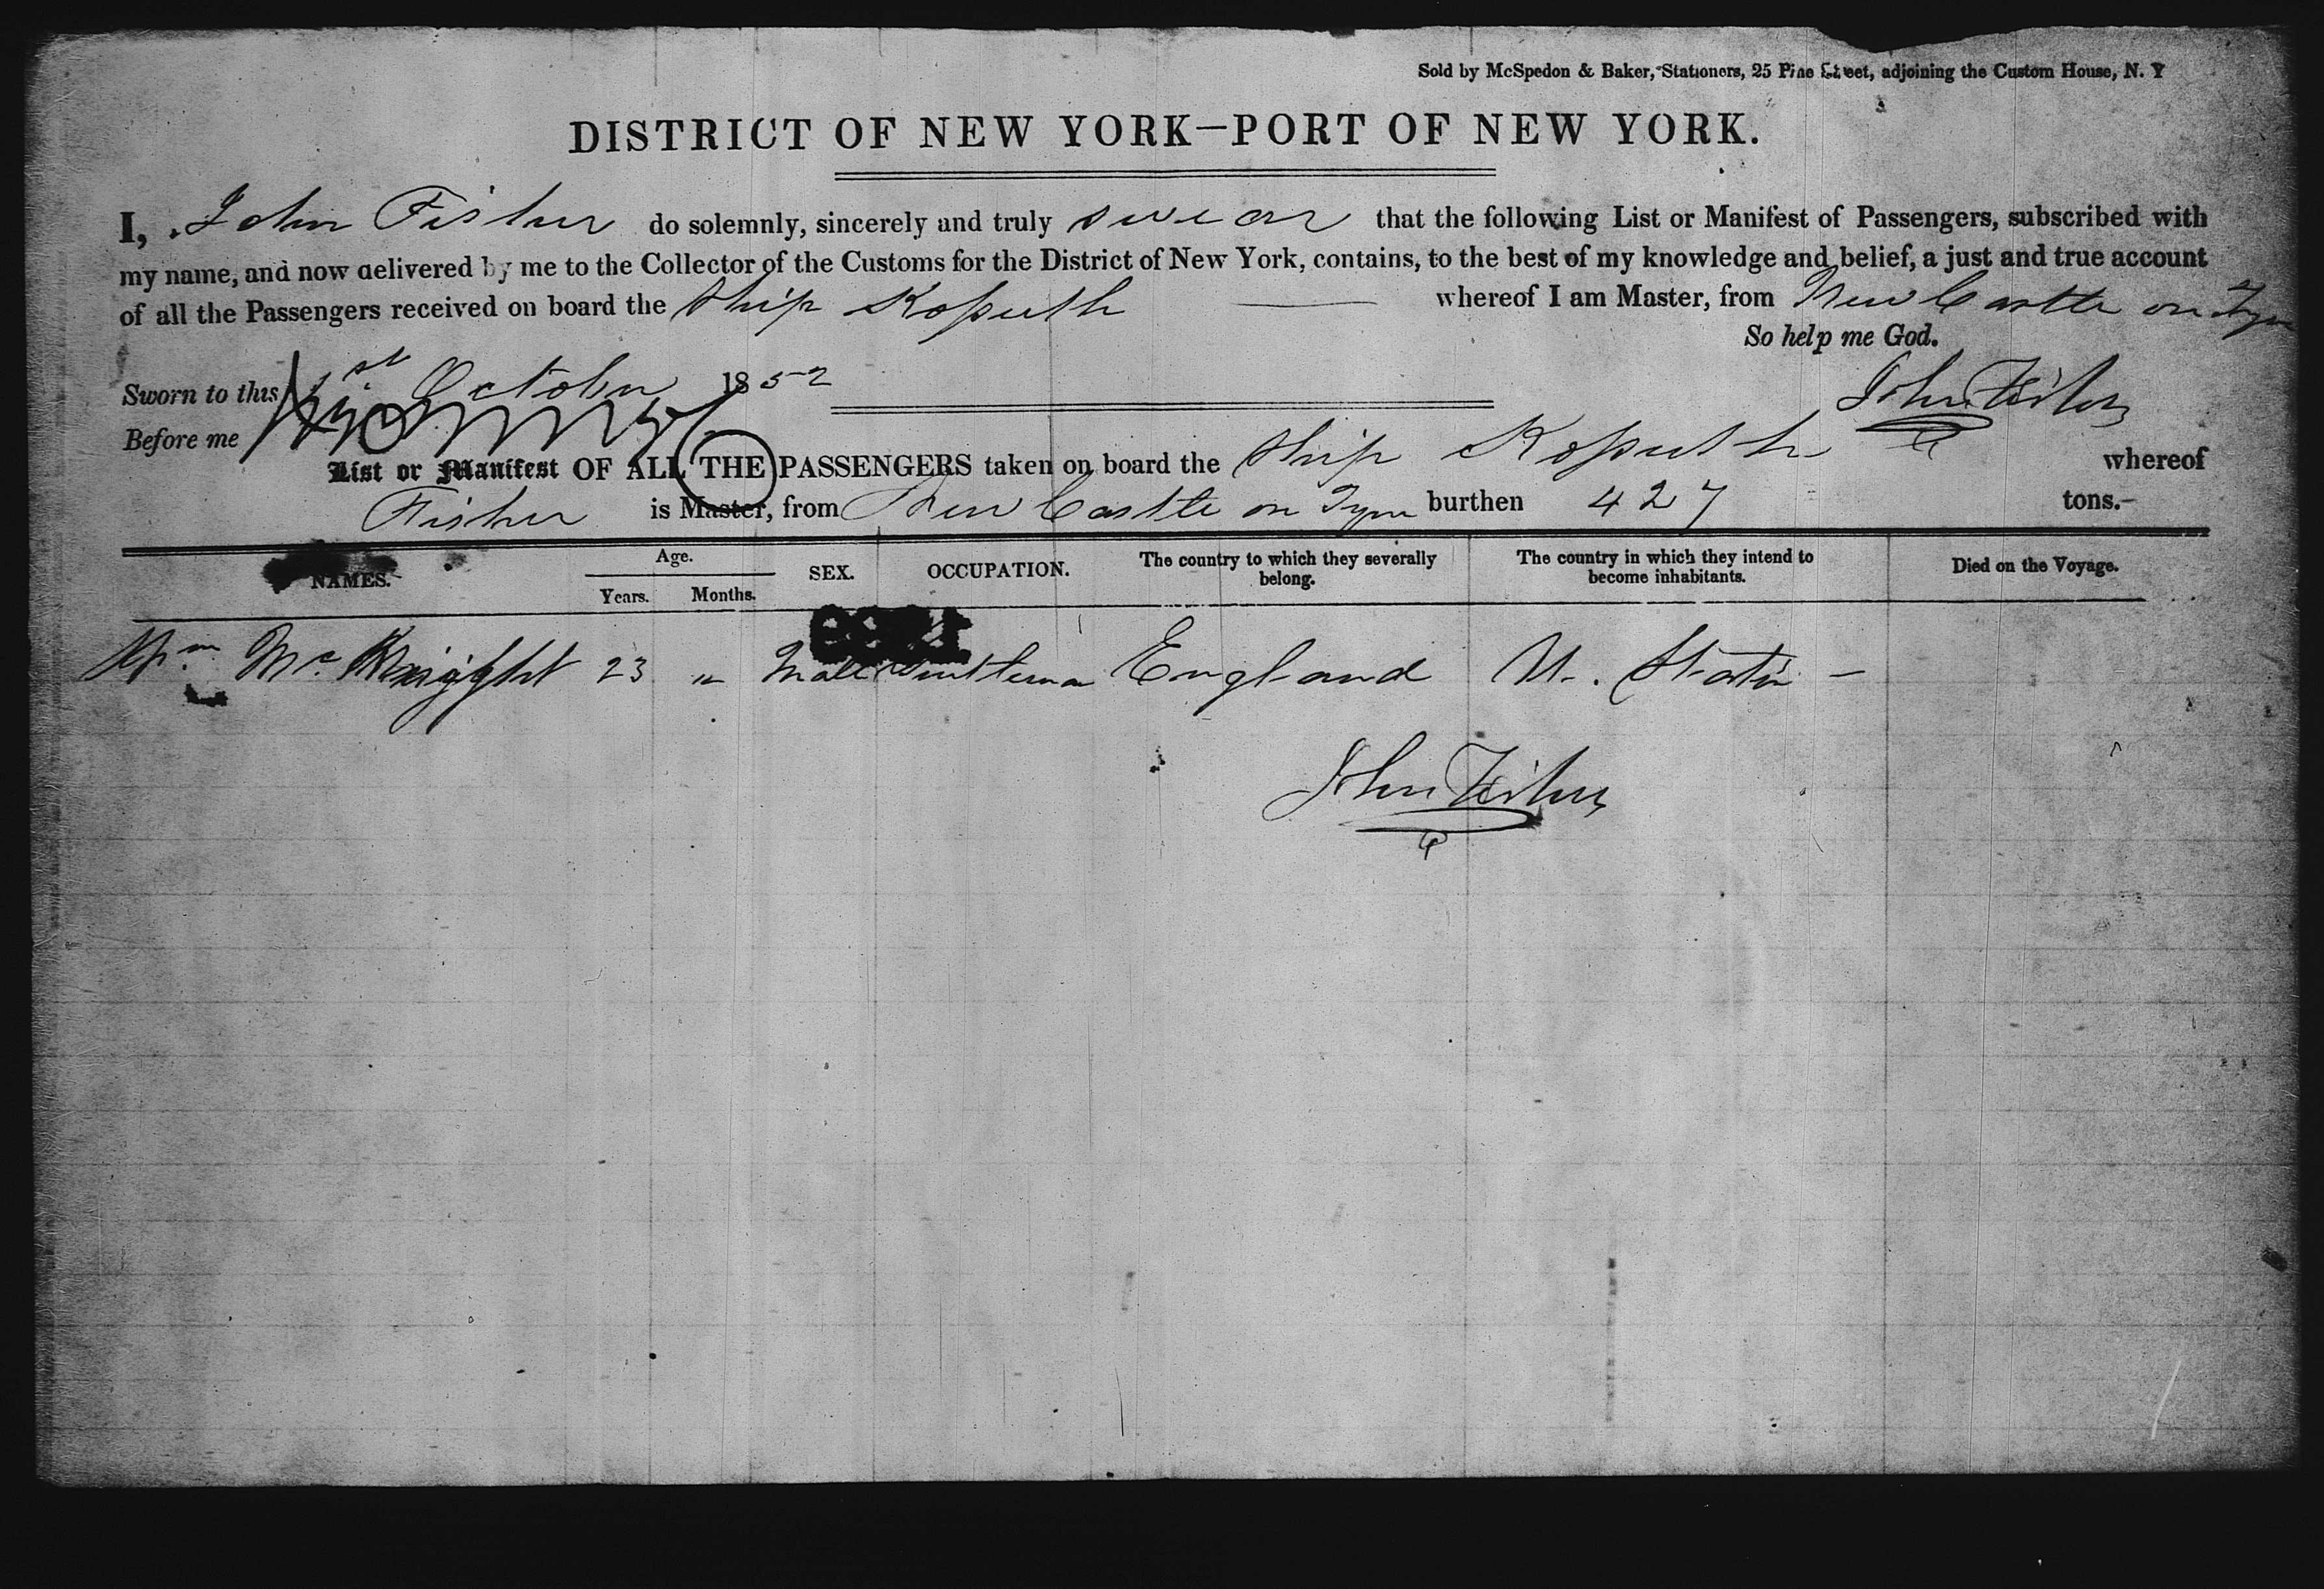 Sold by McSpedon & Baker, Stationers, 25 Pine Street, adjoining the Custom House, N. Y
DISTRICT OF NEW YORK—PORT OF NEW YORK.
I, John Fisher do solemnly, sincerely and truly swear that the following List or Manifest of Passengers, subscribed with
my name, and now delivered by me to the Collector of the Customs for the District of New York, contains, to the best of my knowledge and belief, a just and true account
of all the Passengers received on board the Ship Kossuth whereof I am Master, from New Castle on Tyne
So help me God.
Sworn to this 1st October 1852 John Fisher
Before me
List or Manifest OF ALL THE PASSENGERS taken on board the Ship Kossuth whereof
Fisher is Master, from New Castle on Tyne burthen 427 tons.
NAMES. Age. Years. Months. SEX. OCCUPATION. The country to which they severally belong. The country in which they intend to become inhabitants. Died on the Voyage.
Wm Mc Knight 23 " Male Gentleman England U. States –
John Fisher